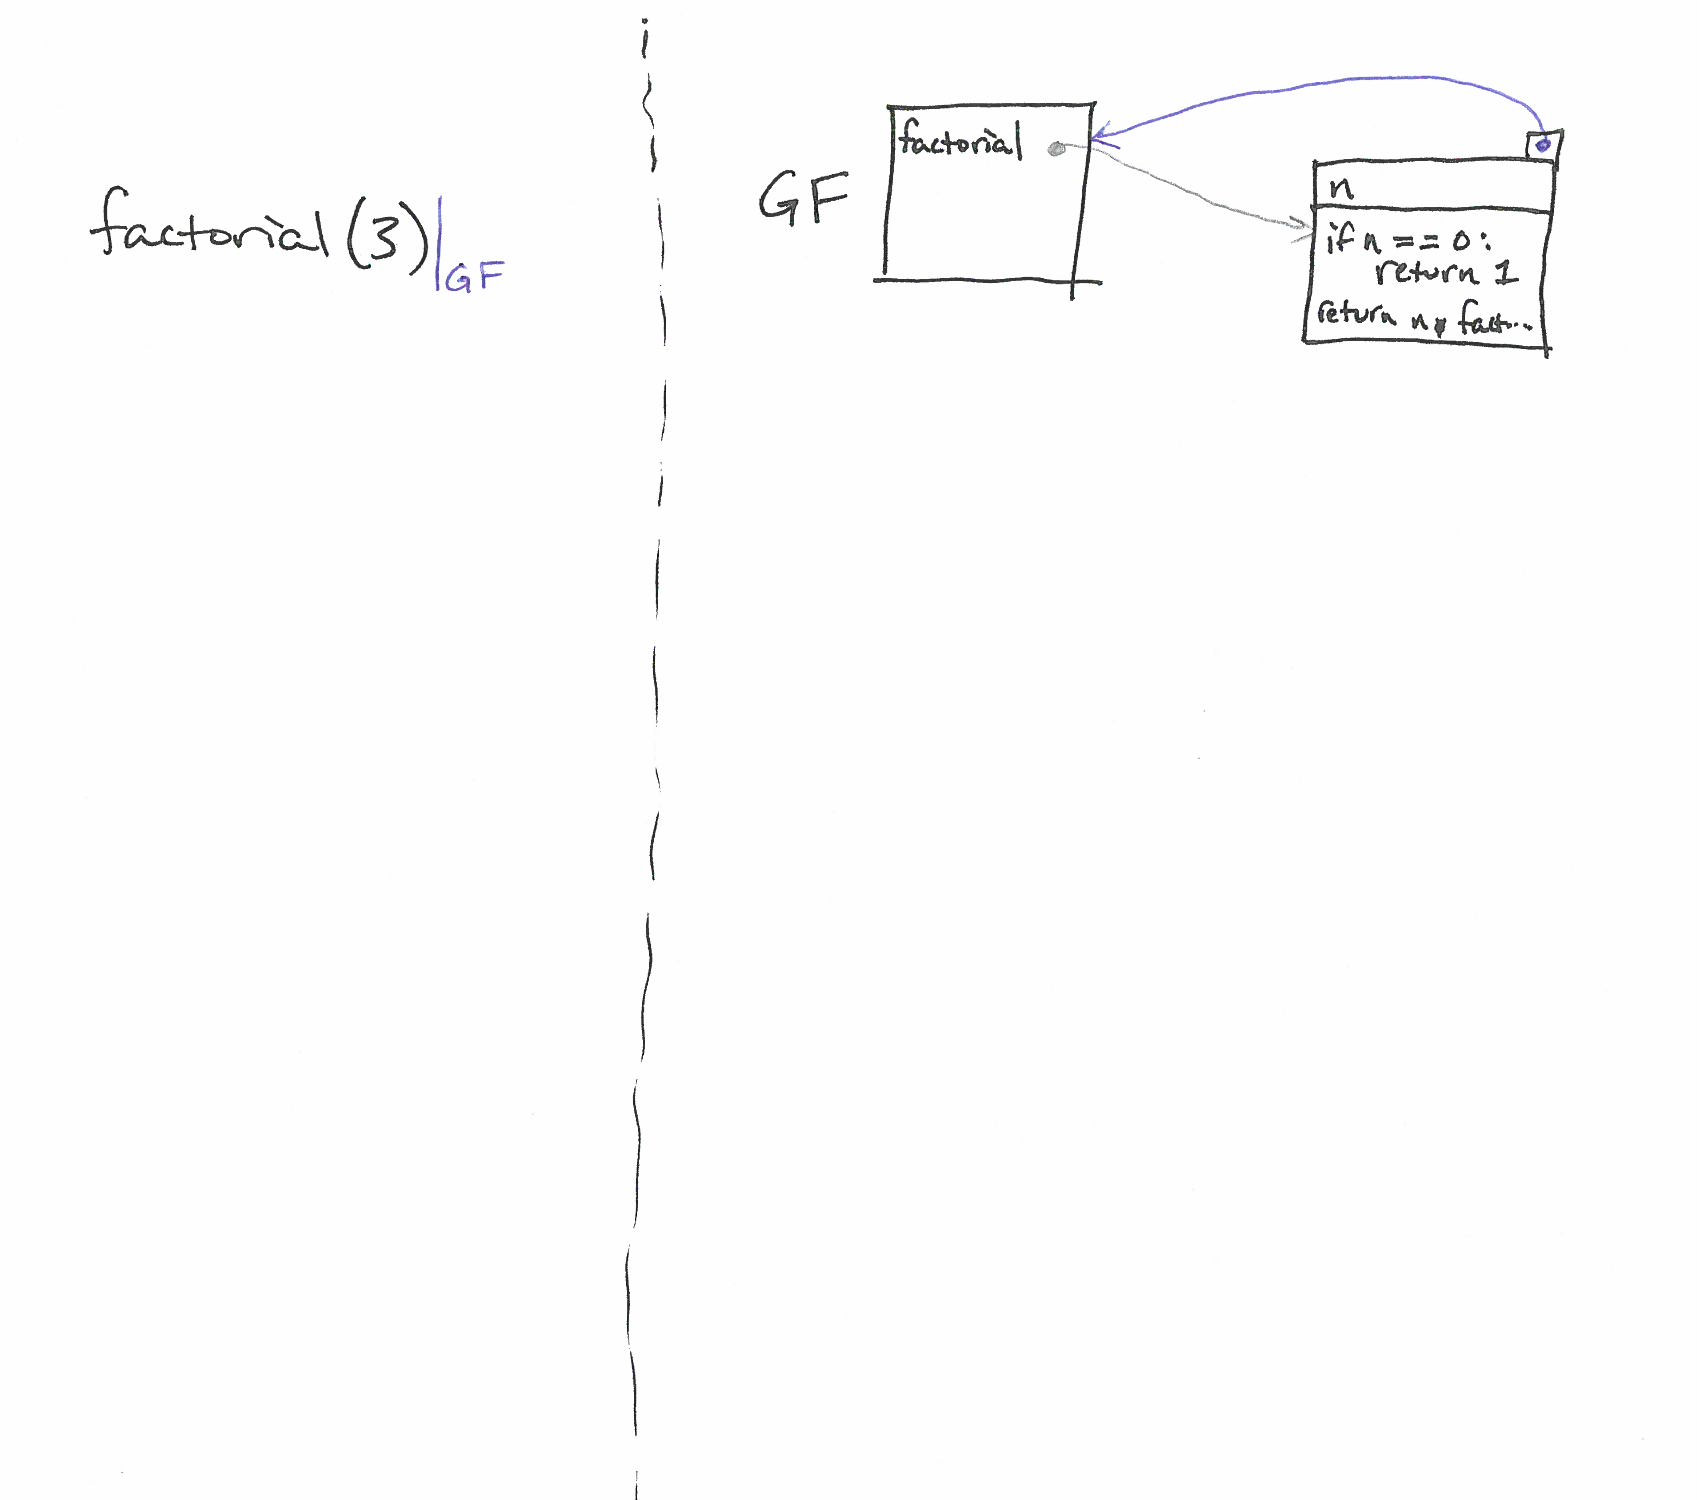 factorial(3)|GF
GF
factorial
n
if n == 0:
return 1
return n * fact...